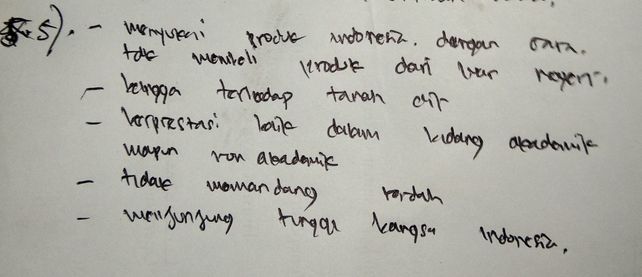 5). - menyukai produk indonesia. dengan cara.
tdk membeli produk dari luar negeri.
- bangga terhadap tanah air
- berprestasi baik dalam bidang akademik
maupun non akademik
- tidak memandang rendah
- menjunjung tinggi bangsa indonesia.